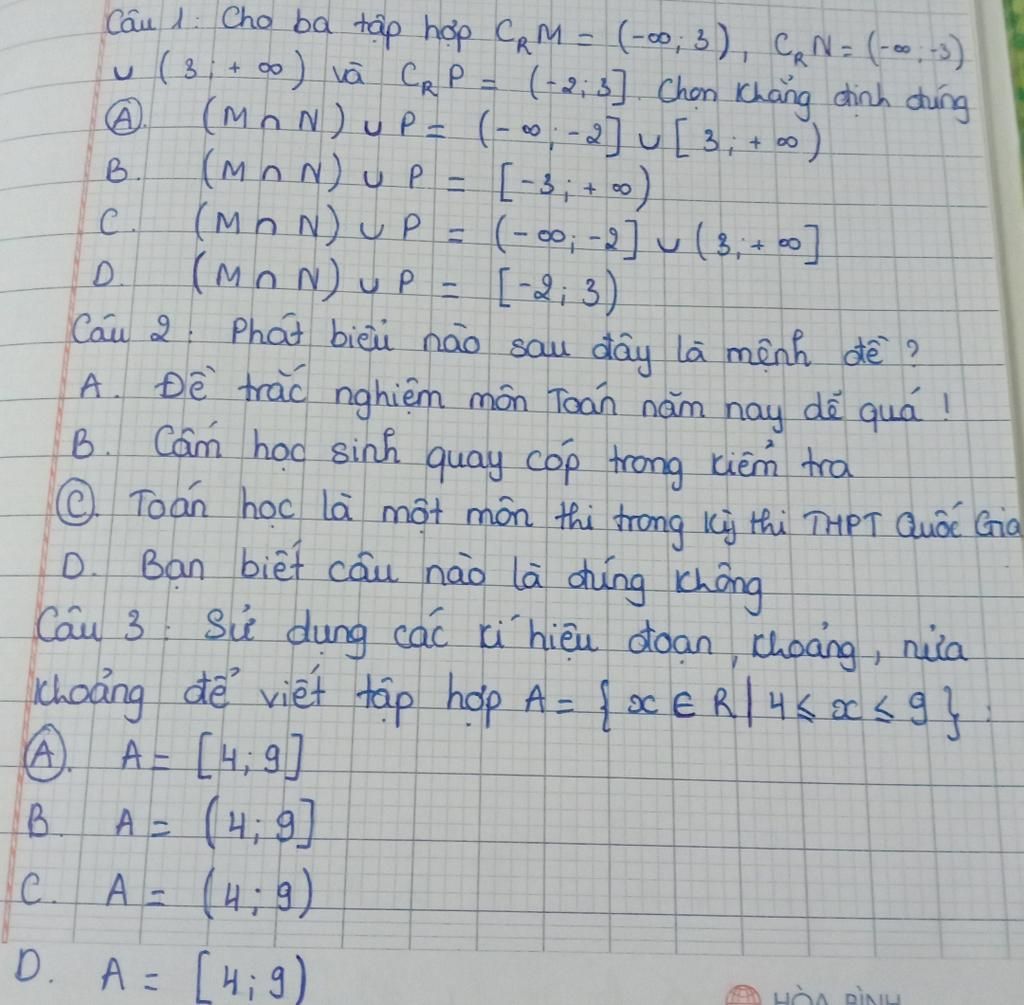 Câu 1: Cho ba tập hợp CRM = (-∞; 3), CRN = (-∞; -3)
∪ (3; +∞) và CRP = (-2; 3]. Chọn khẳng định đúng
A. (M ∩ N) ∪ P = (-∞; -2] ∪ [3; +∞)
B. (M ∩ N) ∪ P = [-3; +∞)
C. (M ∩ N) ∪ P = (-∞; -2] ∪ (3; +∞]
D. (M ∩ N) ∪ P = [-2; 3)
Câu 2: Phát biểu nào sau đây là mệnh đề?
A. Đề trắc nghiệm môn Toán năm nay dễ quá!
B. Cấm học sinh quay cóp trong kiểm tra
C. Toán học là một môn thi trong kỳ thi THPT Quốc Gia
D. Bạn biết câu nào là đúng không
Câu 3: Sử dụng các kí hiệu đoạn, khoảng, nửa
khoảng để viết tập hợp A = { x ∈ R | 4 ≤ x ≤ 9 }
A. A = [4; 9]
B. A = (4; 9]
C. A = (4; 9)
D. A = [4; 9)
HÒA BÌNH